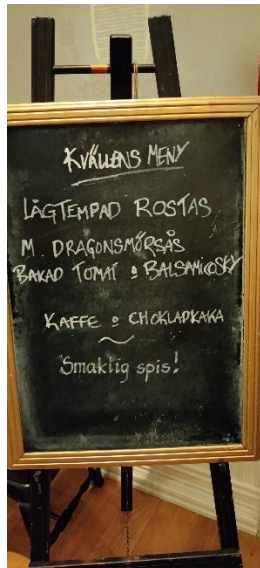 KVÄLLENS MENY
LÅGTEMPAD ROSTAS
M. DRAGONSMÖRSÅS
BAKAD TOMAT o BALSAMICOSKY
KAFFE o CHOKLADKAKA
Smaklig spis!